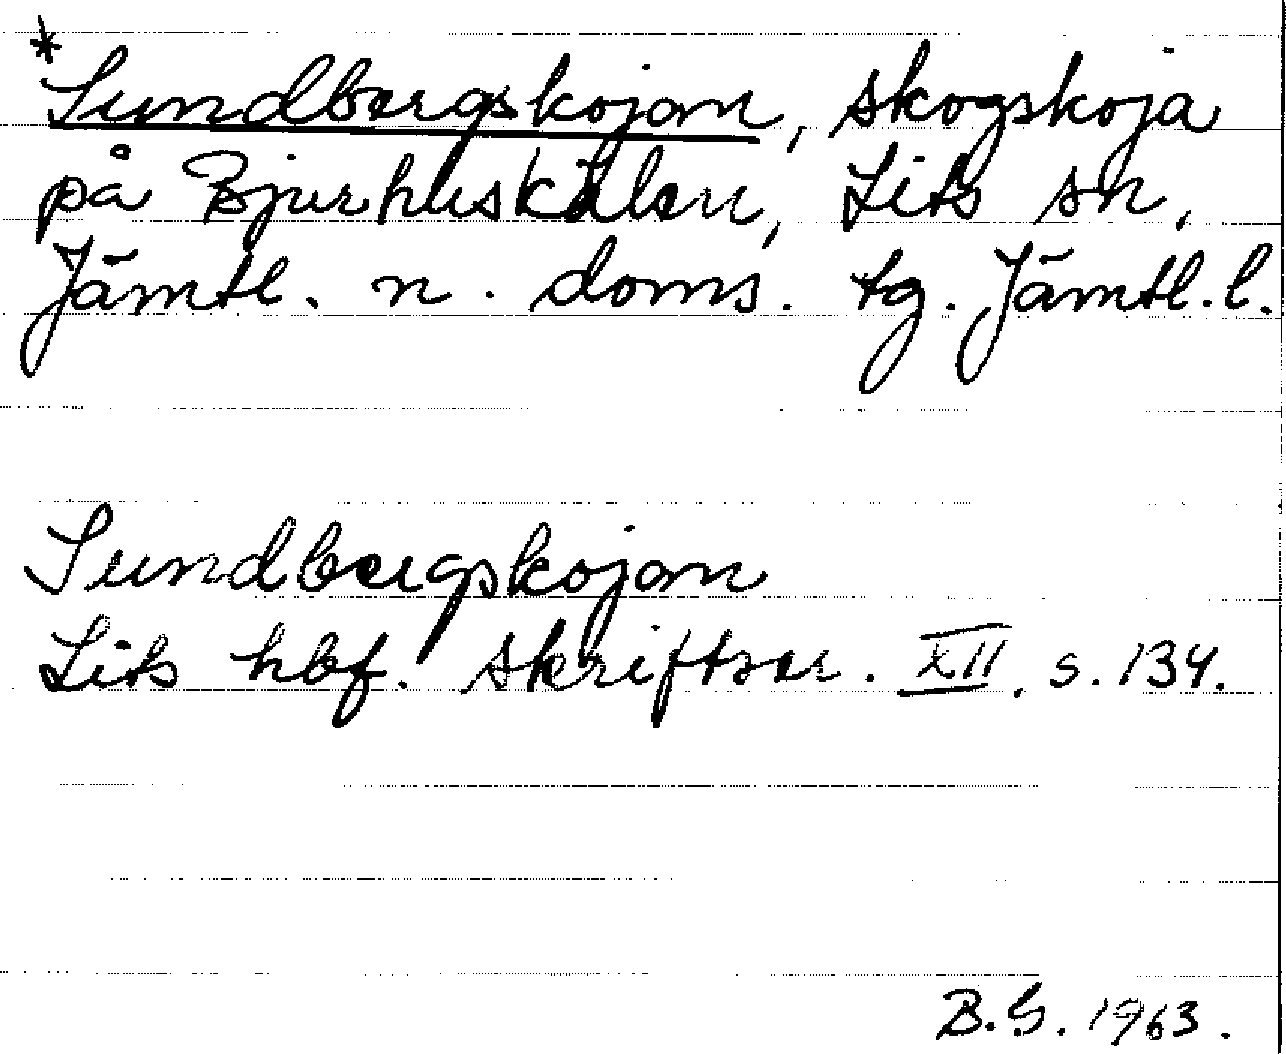 *Sundbergskojan, skogskoja
på Bjurhuskälen, Lits sn,
Jämtl. n. doms. tg. Jämtl. l.
Sundbergskojan
Lits hbf. skriftser. XII, s. 134.
B.G. 1963.